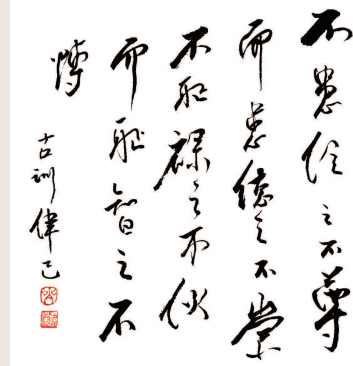 不患位之不尊
而患德之不崇
不耻祿之不伙
而耻智之不
博
古訓偉己